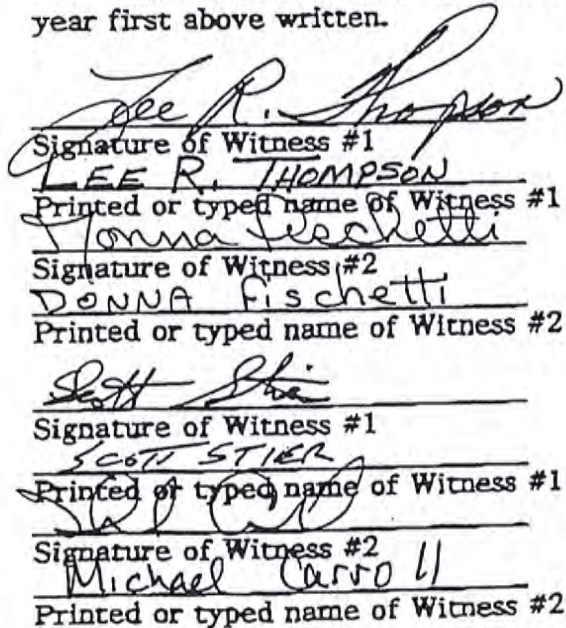 year first above written.
Lee R. Thompson
Signature of Witness #1
LEE R. THOMPSON
Printed or typed name of Witness #1
Donna Fischetti
Signature of Witness #2
DONNA Fischetti
Printed or typed name of Witness #2
Scott
Signature of Witness #1
SCOTT STIER
Printed or typed name of Witness #1
Signature of Witness #2
Michael Carroll
Printed or typed name of Witness #2